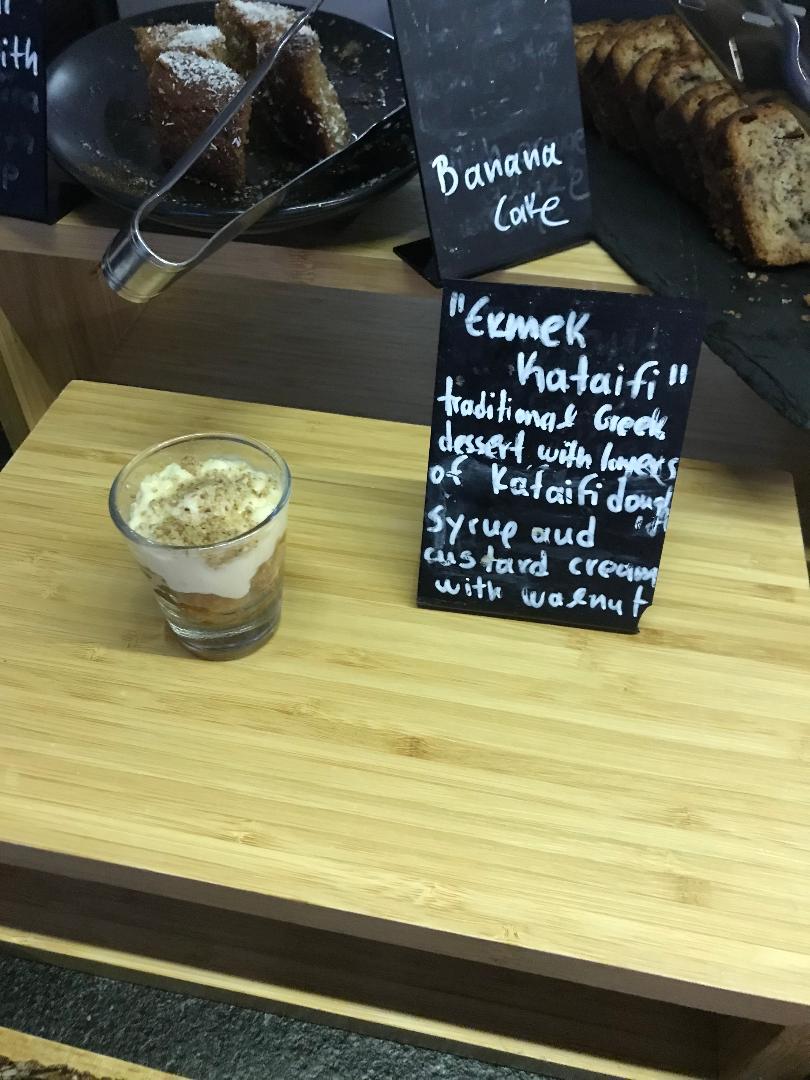 ith
Banana
Cake
"Ekmek
Kataifi"
traditional Greek
dessert with layers
of Kataifi dough
syrup and
custard cream
with walnut